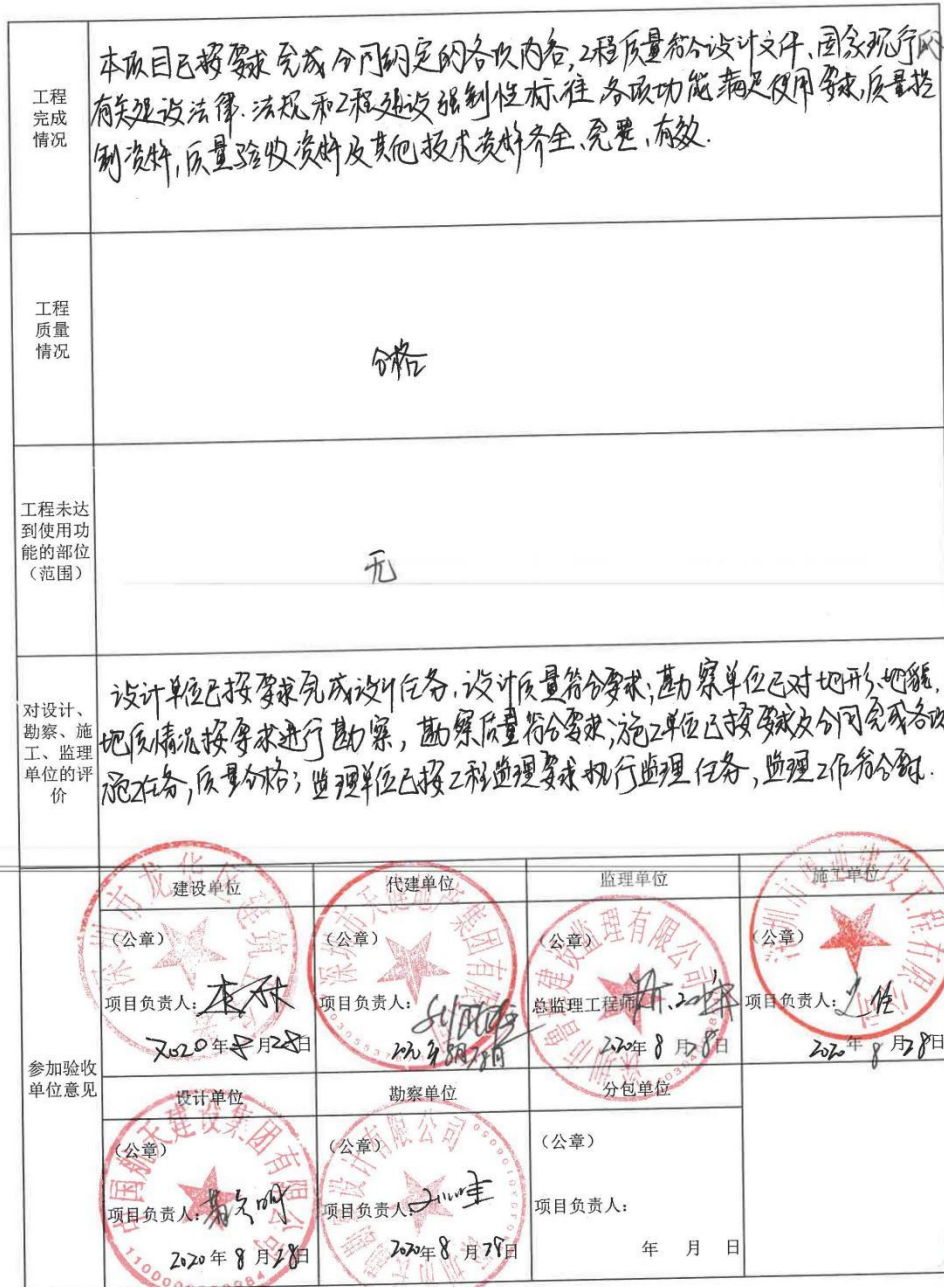 工程
完成
情况
本项目已按要求完成合同约定的各项内容,工程质量符合设计文件、国家现行的
有关建设法律、法规和工程建设强制性标准,各项功能满足使用要求,质量控
制资料,质量验收资料及其他技术资料齐全、完整、有效.
工程
质量
情况
合格
工程未达
到使用功
能的部位
(范围)
无
对设计、
勘察、施
工、监理
单位的评
价
设计单位已按要求完成设计任务,设计质量符合要求;勘察单位已对地形、地貌,
地质情况按要求进行勘察,勘察质量符合要求;施工单位已按要求及合同完成各项
施工任务,质量合格;监理单位已按工程监理要求执行监理任务,监理工作符合要求.
参加验收
单位意见
建设单位
代建单位
监理单位
施工单位
(公章)
(公章)
(公章)
(公章)
项目负责人:
项目负责人:
总监理工程师:
项目负责人:
2020年8月28日
2020年8月28日
2020年8月28日
2020年8月28日
设计单位
勘察单位
分包单位
(公章)
(公章)
(公章)
项目负责人:
项目负责人:
项目负责人:
2020年8月28日
2020年8月29日
年 月 日
中国航天建设集团有限公司